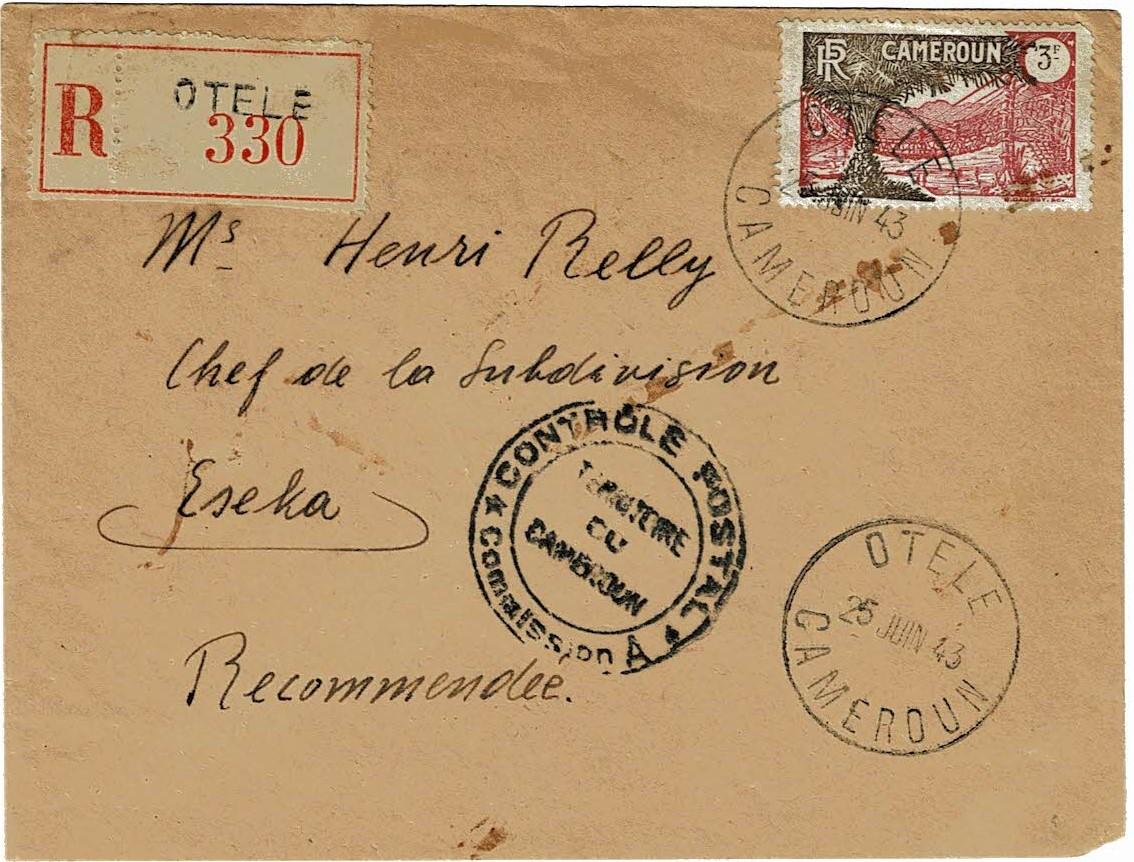 R OTELE
330
RF CAMEROUN 3F
OTELE
JUIN 43
CAMEROUN
Ms Henri Relly
Chef de la Subdivision
Eseka
Recommendée.
CONTROLE POSTAL
Commission A
TERRITOIRE
DU
CAMEROUN
OTELE
25 JUIN 43
CAMEROUN